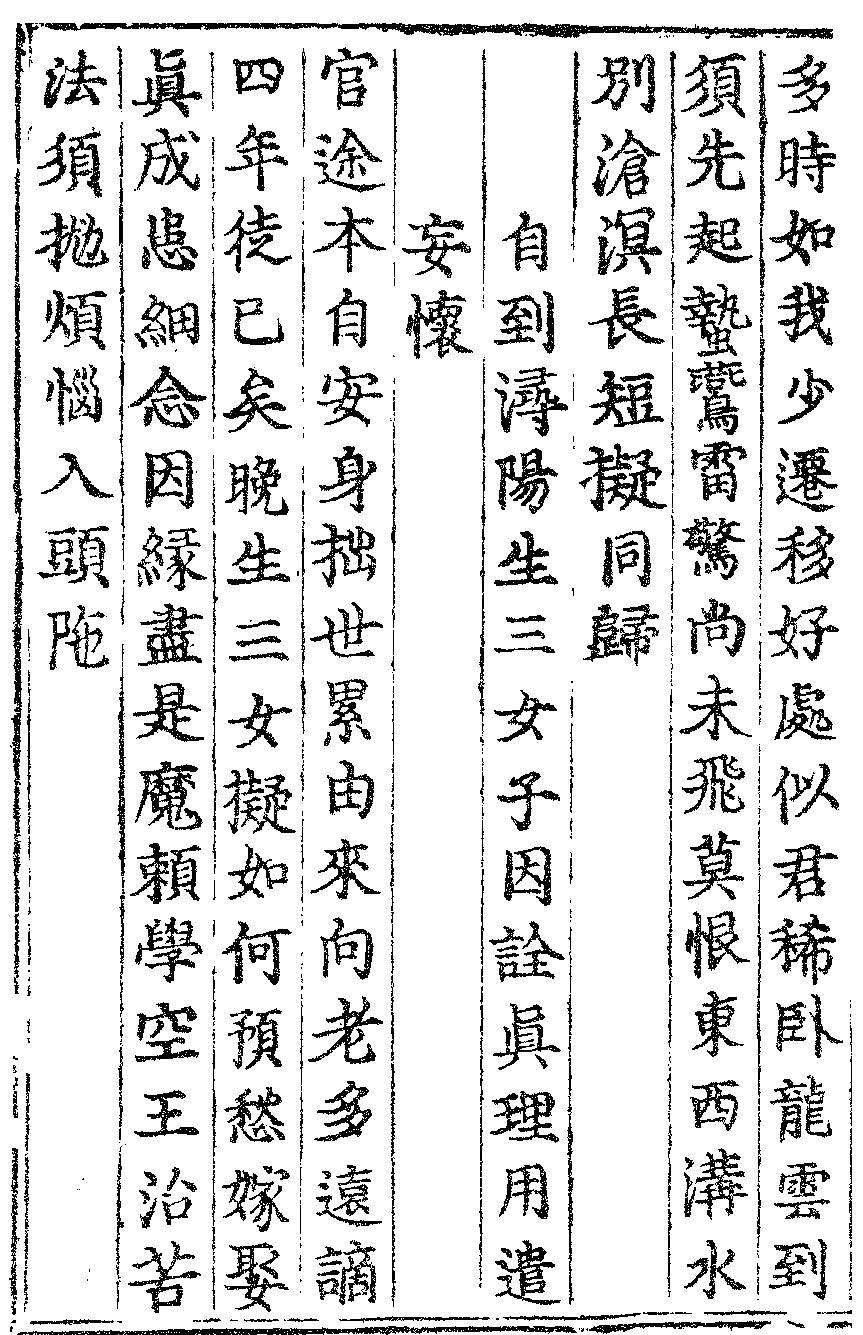 多時如我少遷移好處似君稀卧龍雲到
須先起蟄鷰雷驚尚未飛莫恨東西溝水
别滄溟長短擬同歸
自到潯陽生三女子因詮眞理用遣
妄懷
官途本自安身拙世累由來向老多遠謫
四年徒已矣晚生三女擬如何預愁嫁娶
眞成患細念因緣盡是魔頼學空王治苦
法須抛煩惱入頭陁